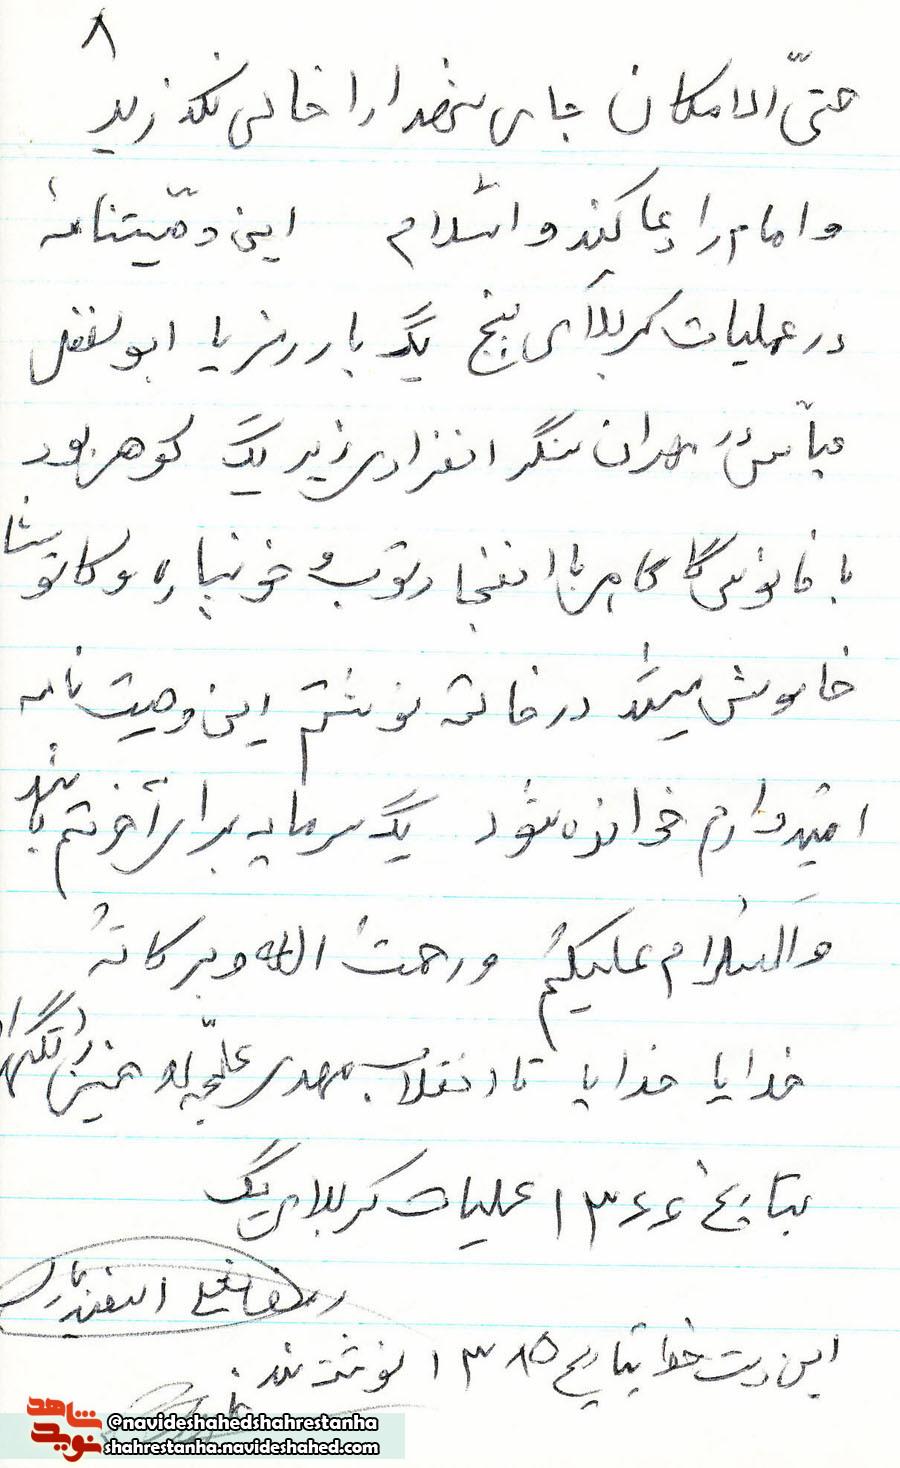 ۸
حتّی الامکان جای شهدا را خالی نگذارید
و امام را دعا کنید والسّلام این وصیّتنامهٔ
در عملیات کربلاای پنج یک بار رمز یا ابوالفضل
عبّاس بود ان سنگر انفرادی زیر یک کوهی بود
با فانوس گاگاهی با انفجار توپ و خونپاره و کاتوشا
خاموش میشد در خاتمه نوشتم این وصیت نامه
امیّدوارم خوانده شود یک سرمایه برای آخرتم باشد
والسّلام علیکم و رحمت الله و برکاتهُ
خدایا خدایا تا انقلاب مهدی عجّله خمینی را نگهدار
بتاریخ ۱۳۶۶ عملیات کربلای یک
رمضانعلی اسفندیاری
این دست خط بتاریخ ۱۳۸۵ نوشته شد.
شاهد
نوید
@navideshahedshahrestanha
shahrestanha.navideshahed.com